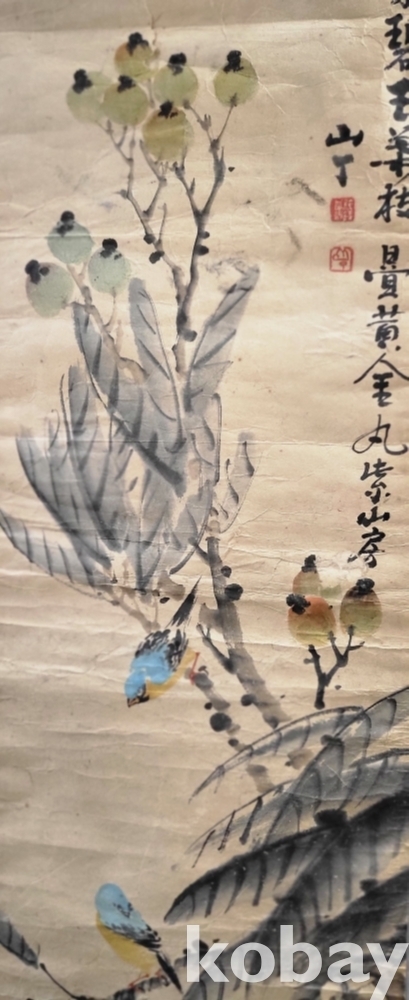 碧玉葉枝疊黃金丸紫山房
山丁
kobay